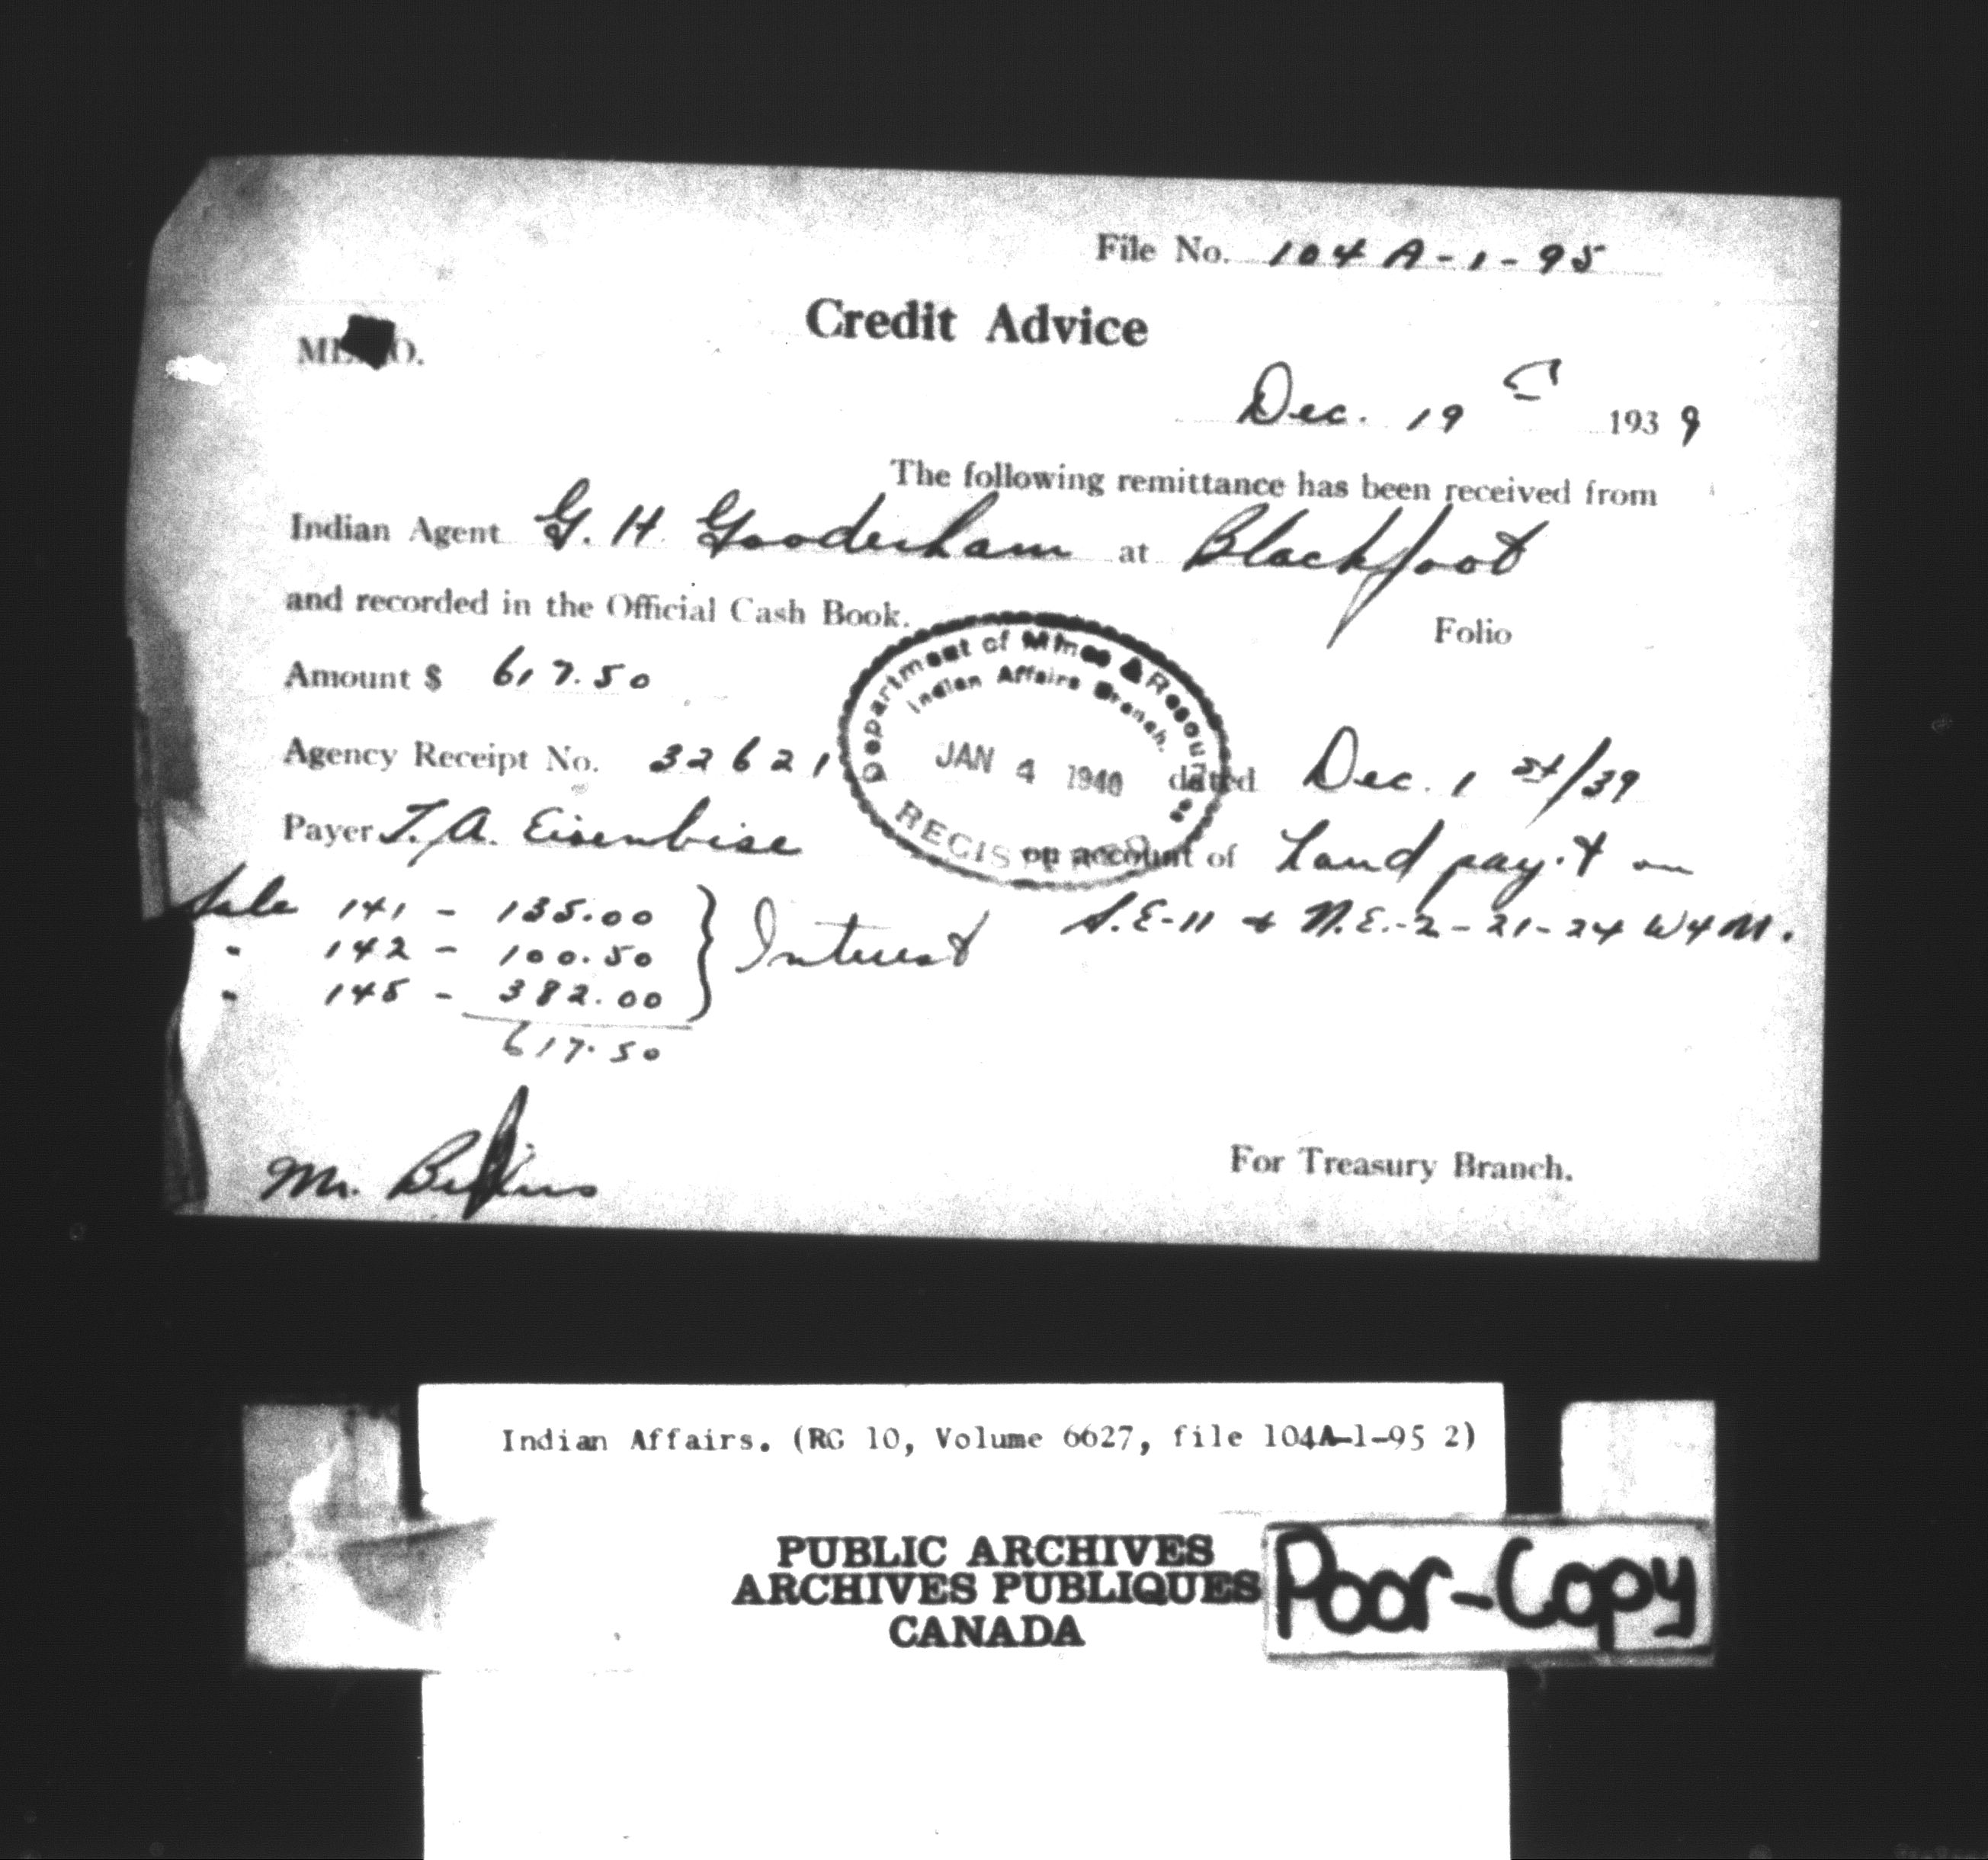 File No. 104 A-1-95
Credit Advice
MEMO.
Dec. 19 1939
The following remittance has been received from
Indian Agent G. H. Gooderham at Blackfoot
and recorded in the Official Cash Book.
Folio
Amount $ 617.50
Department of Mines & Resour
Indian Affairs Branch.
JAN 4 1940
REGIS
Agency Receipt No. 32621 dated Dec. 1st/39
Payer T. A. Eisenbise on account of Land pay.t on
Sale 141 - 135.00 S.E-11 & N.E.-2-21-24 W4M.
" 142 - 100.50 Interest
" 145 - 382.00
617.50
Mr.
For Treasury Branch.
Indian Affairs. (RG 10, Volume 6627, file 104A-1-95 2)
PUBLIC ARCHIVES
ARCHIVES PUBLIQUES
CANADA
Poor-Copy